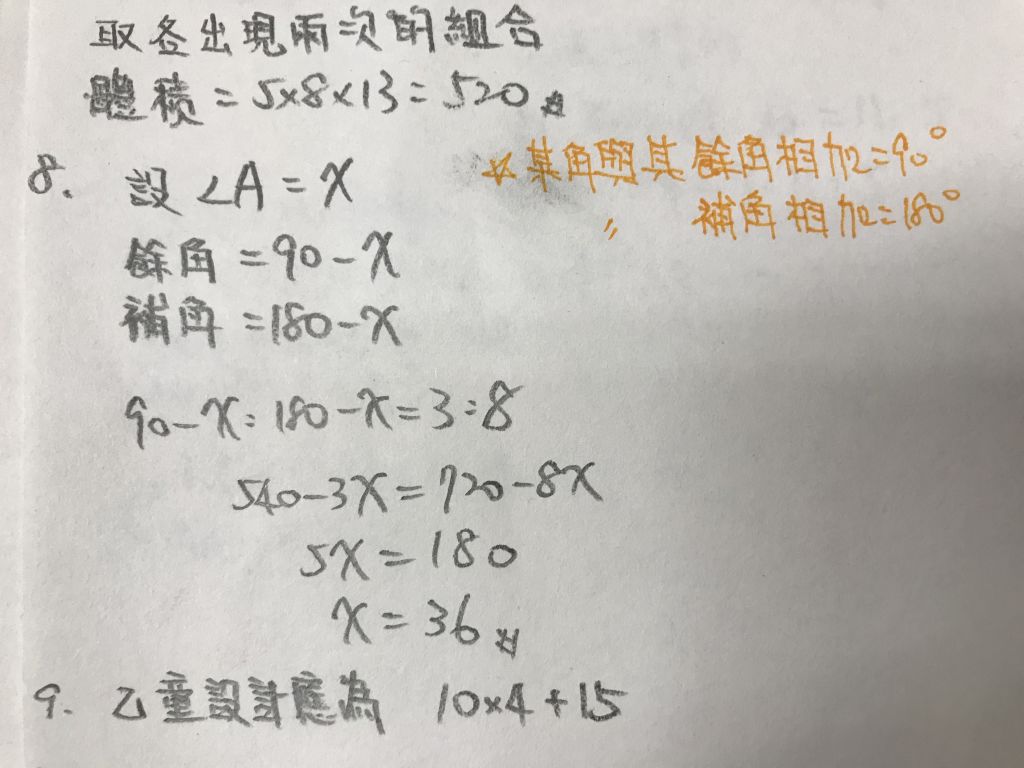 取各出現兩次的組合
體積=5×8×13=520
8. 設∠A=x
☆某角與其餘角相加=90°
〃 補角相加=180°
餘角=90-x
補角=180-x
90-x:180-x=3:8
540-3x=720-8x
5x=180
x=36
9. 乙童設計應為 10×4+15